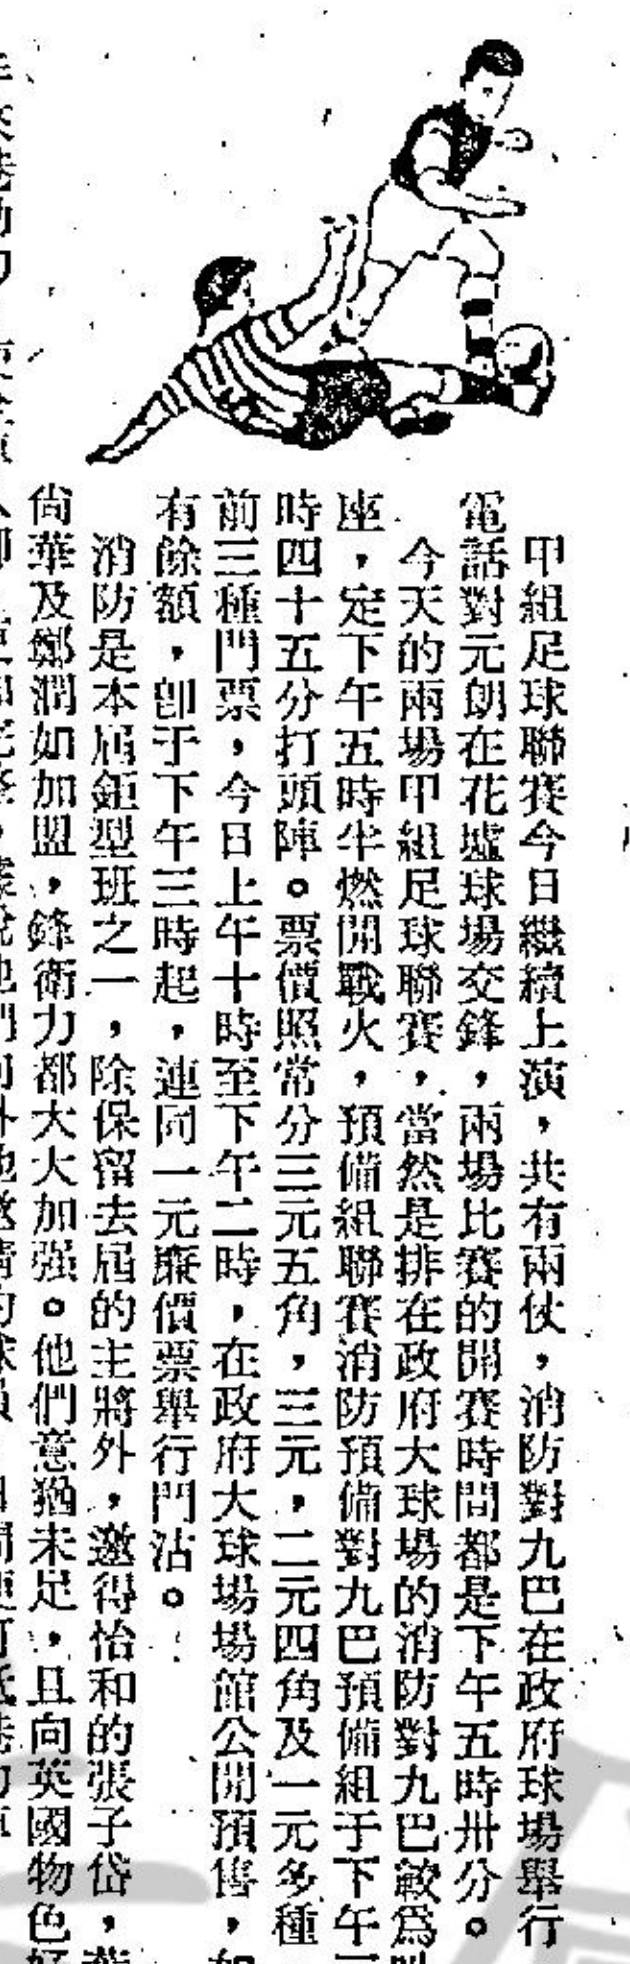 甲組足球聯賽今日繼續上演，共有兩伙，消防對九巴在政府球場舉行
電話對元朗在花墟球場交鋒，兩場比賽的開賽時間都是下午五時卅分。
今天的兩場甲組足球聯賽，當然是排在政府大球場的消防對九巴較爲
座，定下午五時半燃開戰火，預備組聯賽消防預備對九巴預備組于下午
時四十五分打頭陣。票價照常分三元五角，三元，二元四角及一元多種
前三種門票，今日上午十時至下午二時，在政府大球場場館公開預售，如
有餘額，卽于下午三時起，連同一元廉價票舉行門沽。
消防是本屆鉅型班之一，除保留去屆的主將外，邀得怡和的張子岱，
尙華及鄭潤如加盟，鋒衛力都大大加强。他們意猶未足，且向英國物色好